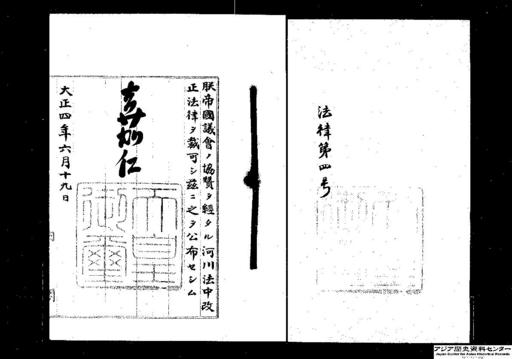 法律第四号
朕帝國議會ノ協賛ヲ經タル河川法中改
正法律ヲ裁可シ茲ニ之ヲ公布セシム
嘉仁
天皇御璽
大正四年六月十九日
アジア歴史資料センター
Japan Center for Asian Historical Records